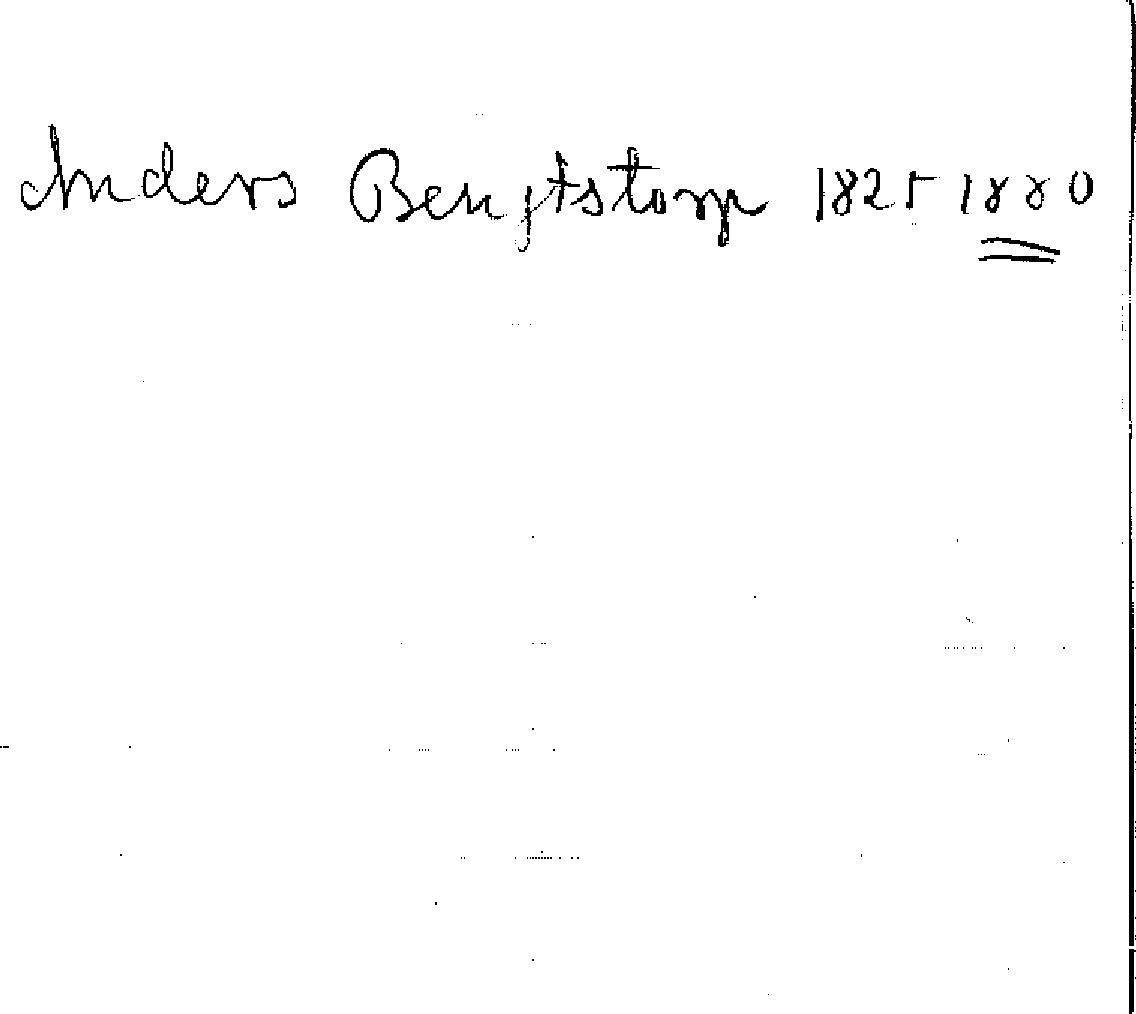 Anders Bengtstorp 1825 1880